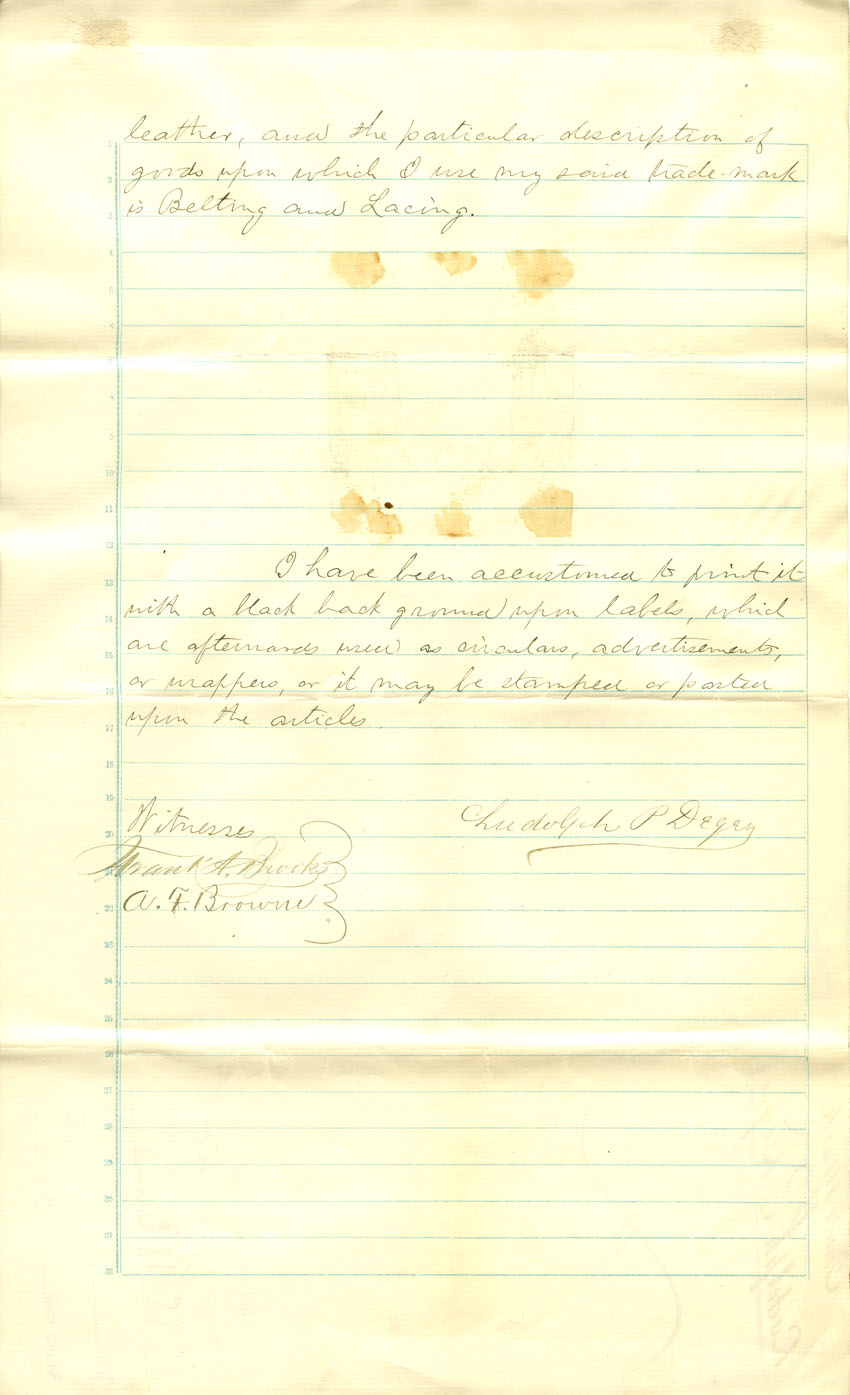 leather, and the particular description of
goods upon which I use my said trade-mark
is Belting and Lacing.
I have been accustomed to print it
with a black back ground upon labels, which
are afterwards used as circulars, advertisements,
or wrappers, or it may be stamped or pasted
upon the articles.
Witnesses
Ludolph P Degen
Frank A. Brooks
A. F. Browne